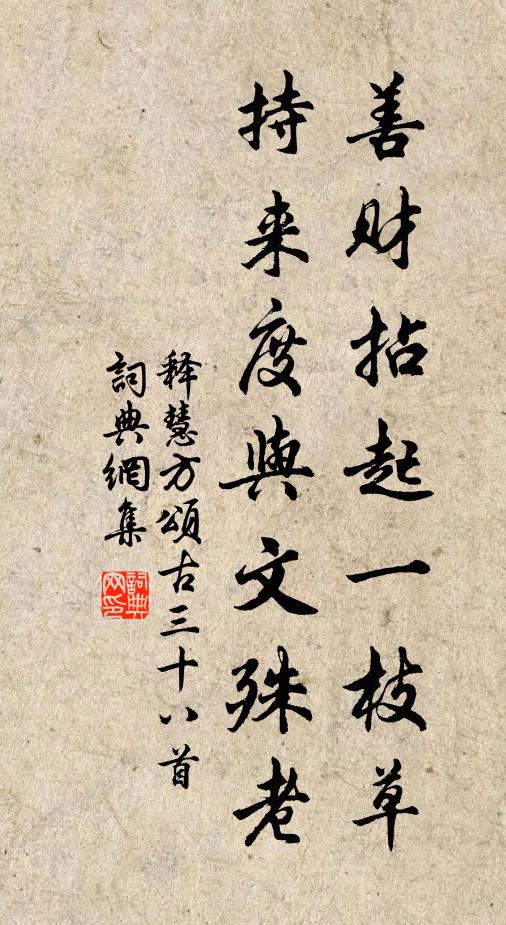 善财拈起一枝草
持来度與文殊老
释慧方頌古三十八首
詞典網集
詞典
网印